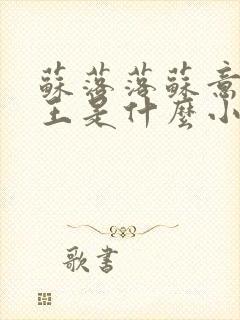 蘇落落蘇意
王是什麼小
歌書